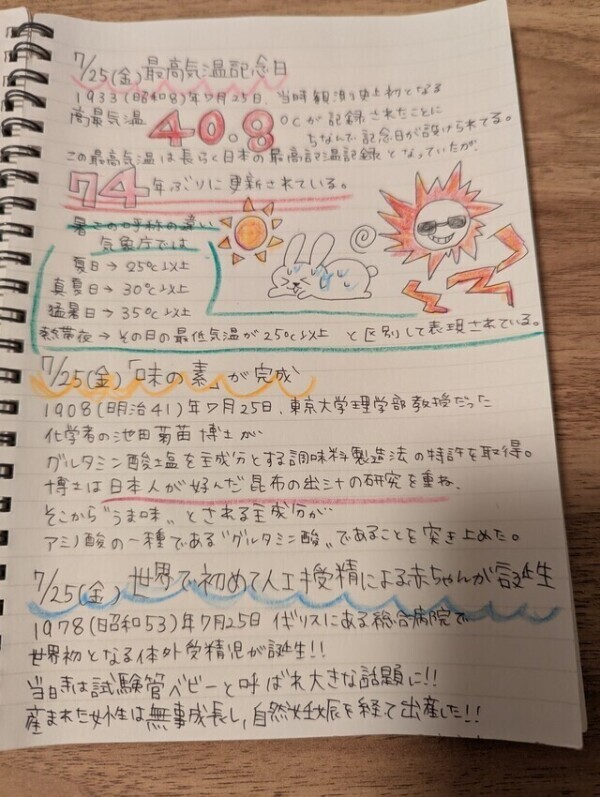 7/25(金)最高気温記念日
1933(昭和8)年7月25日、当時観測史上初となる
高最気温40.8℃が記録されたことに
ちなんで記念日が設けられてる。
この最高気温は長らく日本の最高記温記録となっていたが
74年ぶりに更新されている。
暑さの呼称の違い
気象庁では
夏日→25℃以上
真夏日→30℃以上
猛暑日→35℃以上
熱帯夜→その日の最低気温が25℃以上 と区別して表現されている。
7/25(金)「味の素」が完成
1908(明治41)年7月25日、東京大学理学部教授だった
化学者の池田菊苗博士が
グルタミン酸塩を主成分とする調味料製造法の特許を取得。
博士は日本人が好んだ昆布の出汁の研究を重ね、
そこから"うま味"とされる主成分が
アミノ酸の一種である"グルタミン酸"であることを突き止めた。
7/25(金)世界で初めて人工授精による赤ちゃんが誕生
1978(昭和53)年7月25日 イギリスにある総合病院で
世界初となる体外受精児が誕生!!
当時は試験管ベビーと呼ばれ大きな話題に!!
産まれた女性は無事成長し、自然妊娠を経て出産した!!